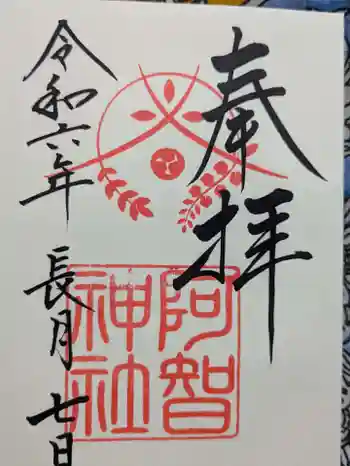 奉拝
阿智
神社
令和六年 長月 七日